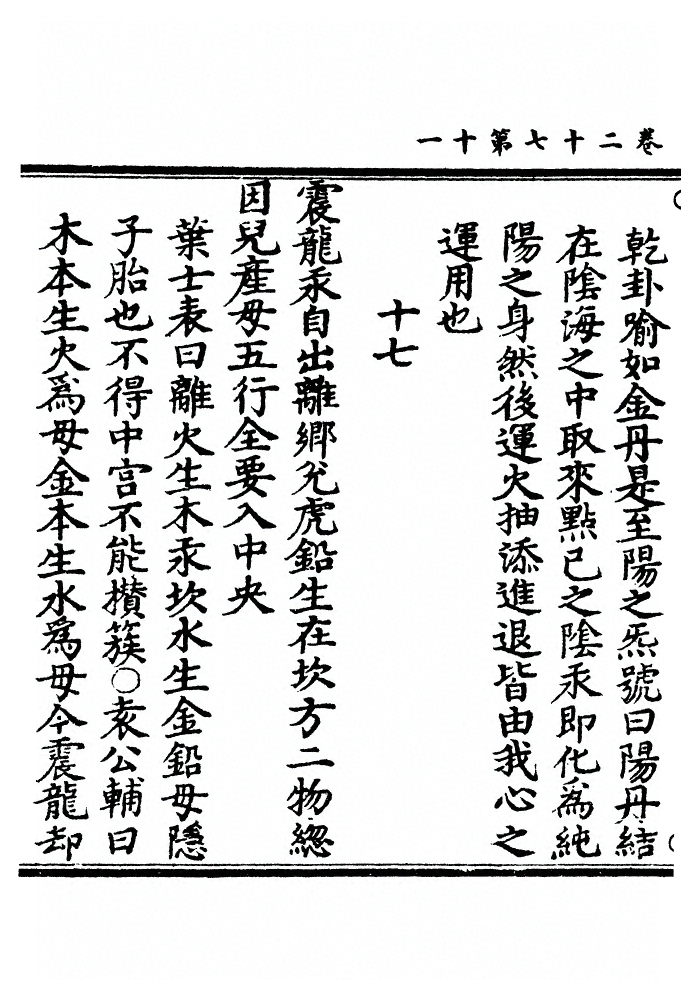 卷二十七第十一
乾卦喻如金丹是至陽之炁號曰陽丹結
在陰海之中取來點己之陰汞即化爲純
陽之身然後運火抽添進退皆由我心之
運用也
十七
震龍汞自出離鄉兌虎鉛生在坎方二物總
因兒產母五行全要入中央
葉士表曰離火生木汞坎水生金鉛母隱
子胎也不得中宮不能攢簇○袁公輔曰
木本生火爲母金本生水爲母今震龍却